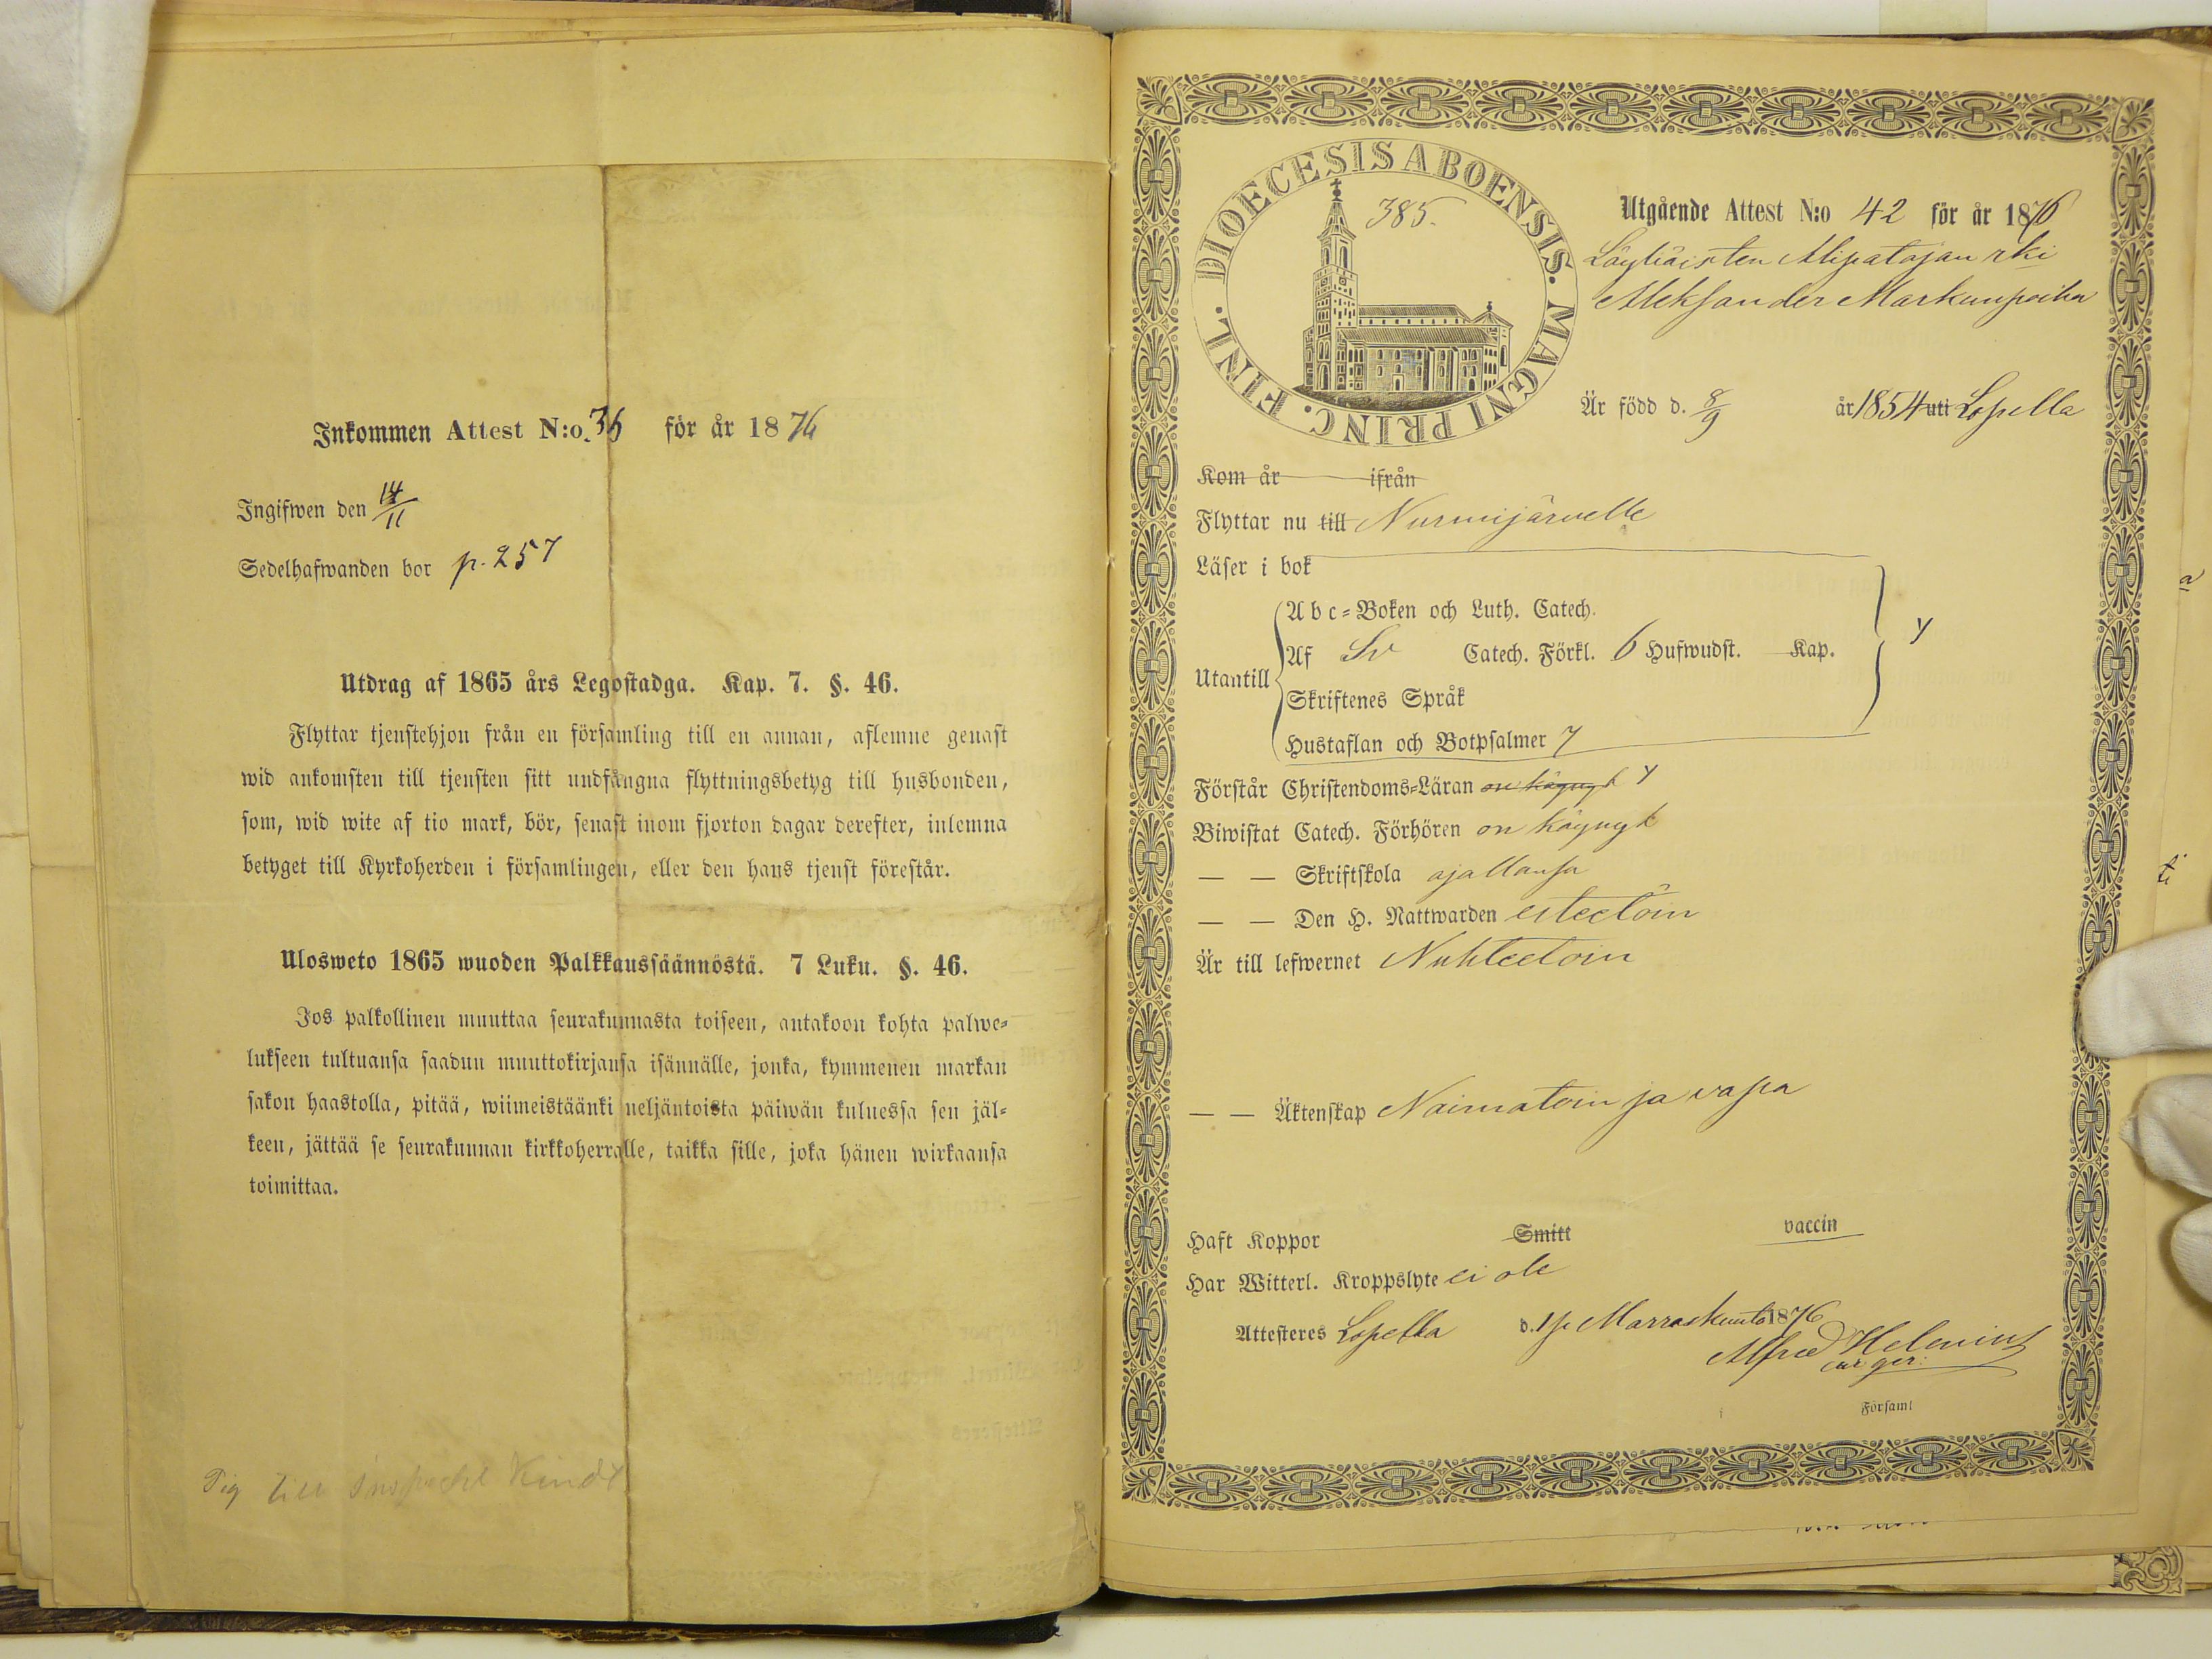 Inkommen Attest N:o 36 för år 1876
Ingifwen den 14/11
Sedelhafwanden bor p. 257
Utdrag af 1865 års Legostadga. Kap. 7. §. 46.
Flyttar tjenstehjon från en församling till en annan, aflemne genast
wid ankomsten till tjensten sitt undfångna flyttningsbetyg till husbonden,
som, wid wite af tio mark, bör, senast inom fjorton dagar derefter, inlemna
betyget till Kyrkoherden i församlingen, eller den hans tjenst förestår.
Ulosweto 1865 wuoden Palkkaussäännöstä. 7 Luku. §. 46.
Jos palkollinen muuttaa seurakunnasta toiseen, antakoon kohta palwe-
lukseen tultuansa saadun muuttokirjansa isännälle, jonka, kymmenen markan
sakon haastolla, pitää, wiimeistäänki neljäntoista päiwän kuluessa sen jäl-
keen, jättää se seurakunnan kirkkoherralle, taikka sille, joka hänen wirkaansa
toimittaa.
Pig till Kindt
DIOECESIS ABOENSIS. MAGNI PRINC. FINL.
385.
Utgående Attest N:o 42 för år 1876
Löyliäisten Alipatajan rki
Aleksander Markunpoika
Är född d. 8/9 år 1854 uti Lopella
Kom år ifrån
Flyttar nu till Nurmijärvelle
Läser i bok
Abc-Boken och Luth. Catech.
Utantill
Af Sv Catech. Förkl. 6 Hufwudst. Kap.
Skriftenes Språk
Hustaflan och Botpsalmer y
y
Förstår Christendoms-Läran on käynyt y
Biwistat Catech. Förhören on käynyt
— — Skriftskola ajallansa
— — Den H. Nattwarden esteetöin
Är till lefwernet Nuhteetoin
— — Äktenskap Naimatoin ja vapa
Haft Koppor Smitt vaccin
Har Witterl. Kroppslyte ei ole
Attesteres Lopella d. 1 p. Marraskuuta 1876
Alfred Helenius
Församl